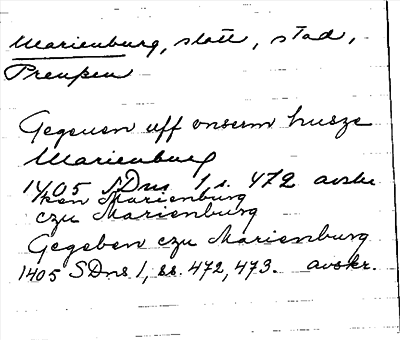 Marienburg, slott, stad,
Preußen
Gegeuen uff vnserm husze
Marienburg
1405 SDns 1, s. 472 avskr.
ken Marienburg
czu Marienburg
Gegeben czu Marienburg
1405 SDns 1, ss. 472, 473. avskr.